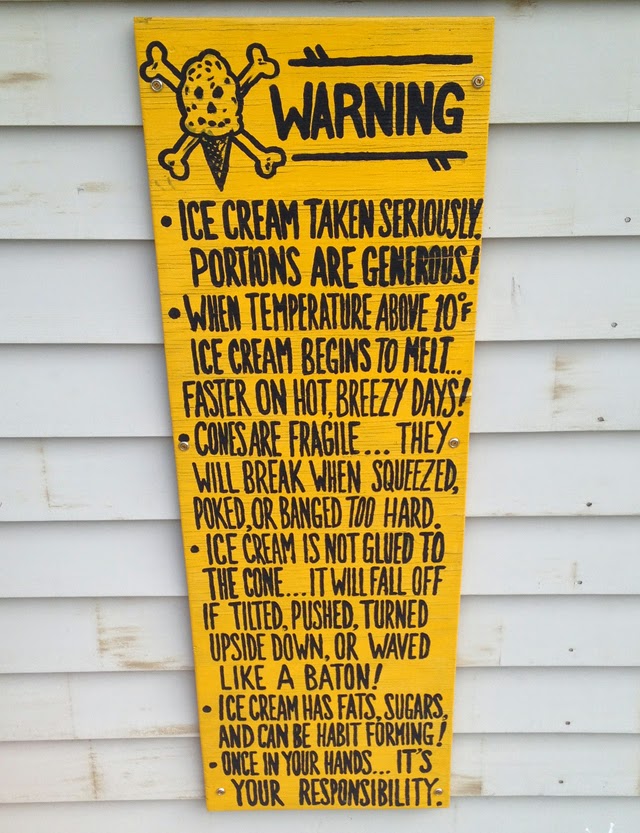 WARNING
• ICE CREAM TAKEN SERIOUSLY.
PORTIONS ARE GENEROUS!
• WHEN TEMPERATURE ABOVE 10°F
ICE CREAM BEGINS TO MELT...
FASTER ON HOT, BREEZY DAYS!
• CONES ARE FRAGILE... THEY
WILL BREAK WHEN SQUEEZED,
POKED, OR BANGED TOO HARD.
• ICE CREAM IS NOT GLUED TO
THE CONE... IT WILL FALL OFF
IF TILTED, PUSHED, TURNED
UPSIDE DOWN, OR WAVED
LIKE A BATON!
• ICE CREAM HAS FATS, SUGARS,
AND CAN BE HABIT FORMING!
• ONCE IN YOUR HANDS... IT'S
YOUR RESPONSIBILITY.